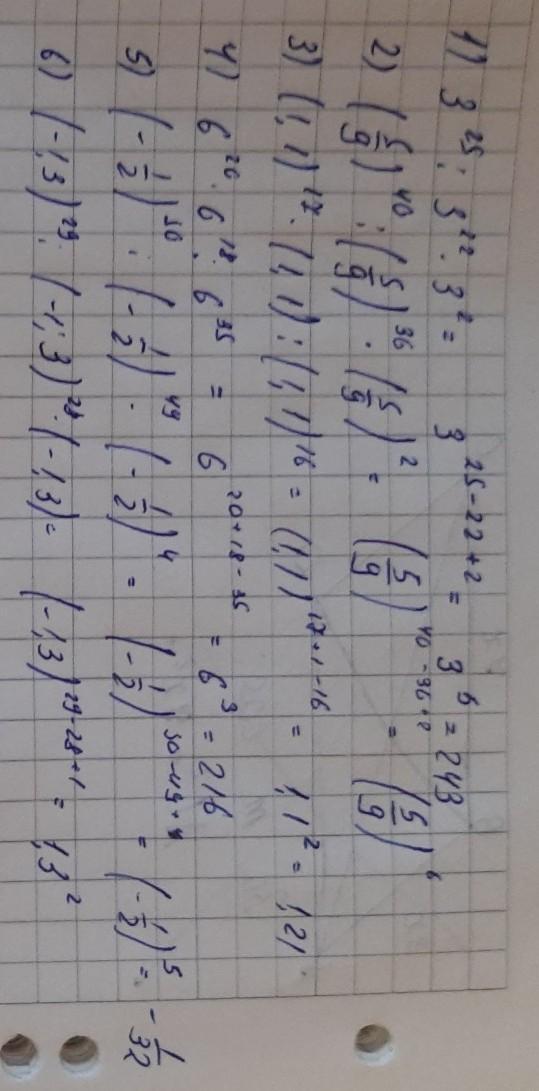 1) 3²⁵ : 3²² · 3² = 3²⁵⁻²²⁺² = 3⁵ = 243
2) (5/9)⁴⁰ : (5/9)³⁶ · (5/9)² = (5/9)⁴⁰⁻³⁶⁺² = (5/9)⁶
3) (1,1)¹⁷ · (1,1) : (1,1)¹⁶ = (1,1)¹⁷⁺¹⁻¹⁶ = 1,1² = 1,21
4) 6²⁰ · 6¹⁸ : 6³⁵ = 6²⁰⁺¹⁸⁻³⁵ = 6³ = 216
5) (-1/2)⁵⁰ : (-1/2)⁴⁹ · (-1/2)⁴ = (-1/2)⁵⁰⁻⁴⁹⁺⁴ = (-1/2)⁵ = -1/32
6) (-1,3)²⁹ : (-1,3)²⁸ · (-1,3) = (-1,3)²⁹⁻²⁸⁺¹ = 1,3²